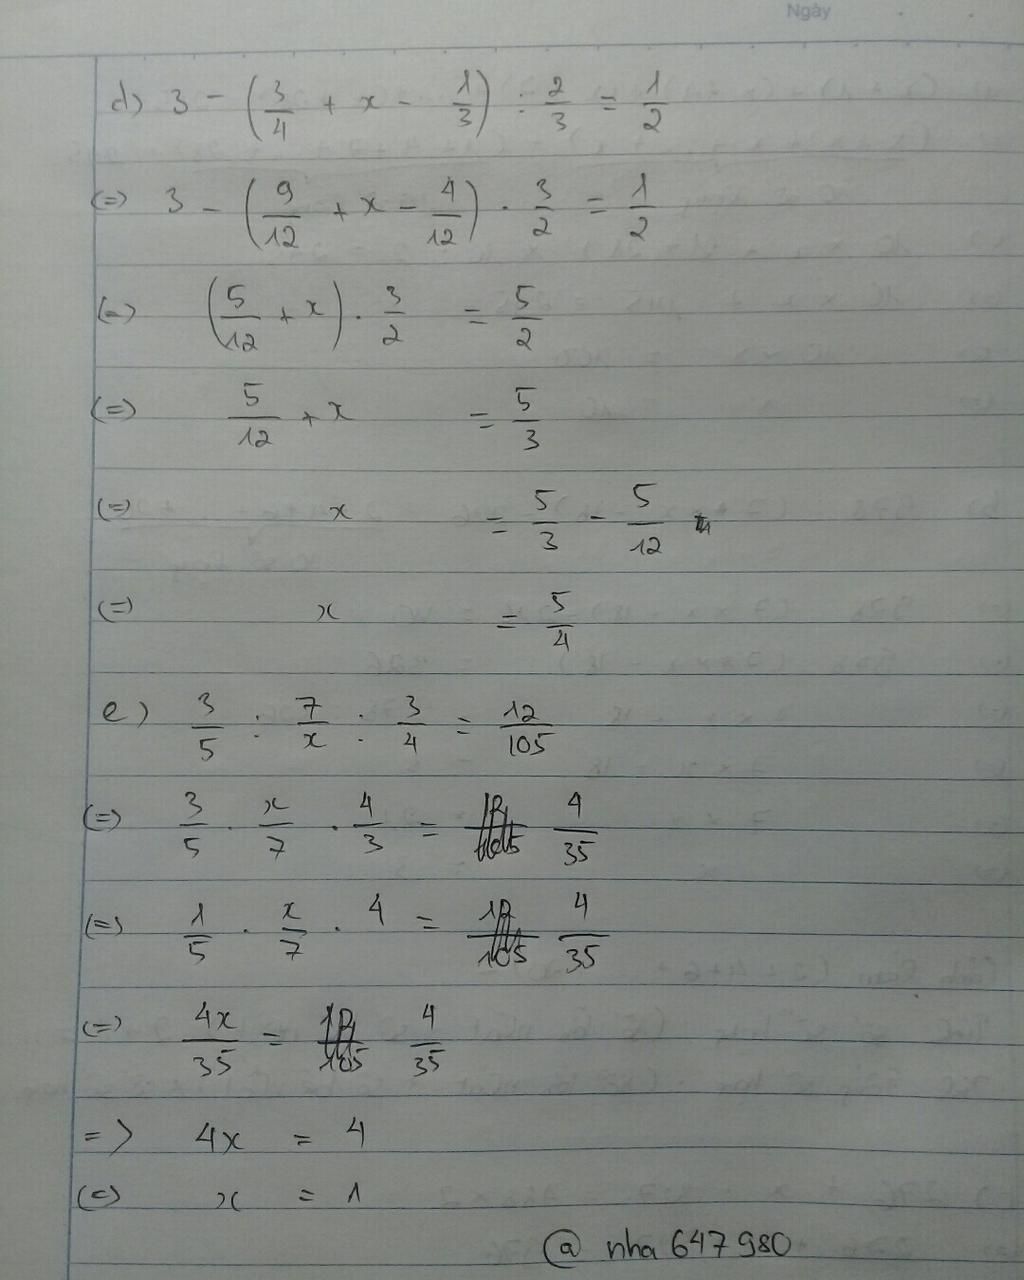 Ngày
d) 3 - (3/4 + x - 1/3) : 2/3 = 1/2
(=) 3 - (9/12 + x - 4/12) . 3/2 = 1/2
(=) (5/12 + x) . 3/2 = 5/2
(=) 5/12 + x = 5/3
(=) x = 5/3 - 5/12
(=) x = 5/4
e) 3/5 : 7/x : 3/4 = 12/105
(=) 3/5 . x/7 . 4/3 = 4/35
(=) 1/5 . x/7 . 4 = 4/35
(=) 4x/35 = 4/35
=> 4x = 4
(=) x = 1
@ nha 647980